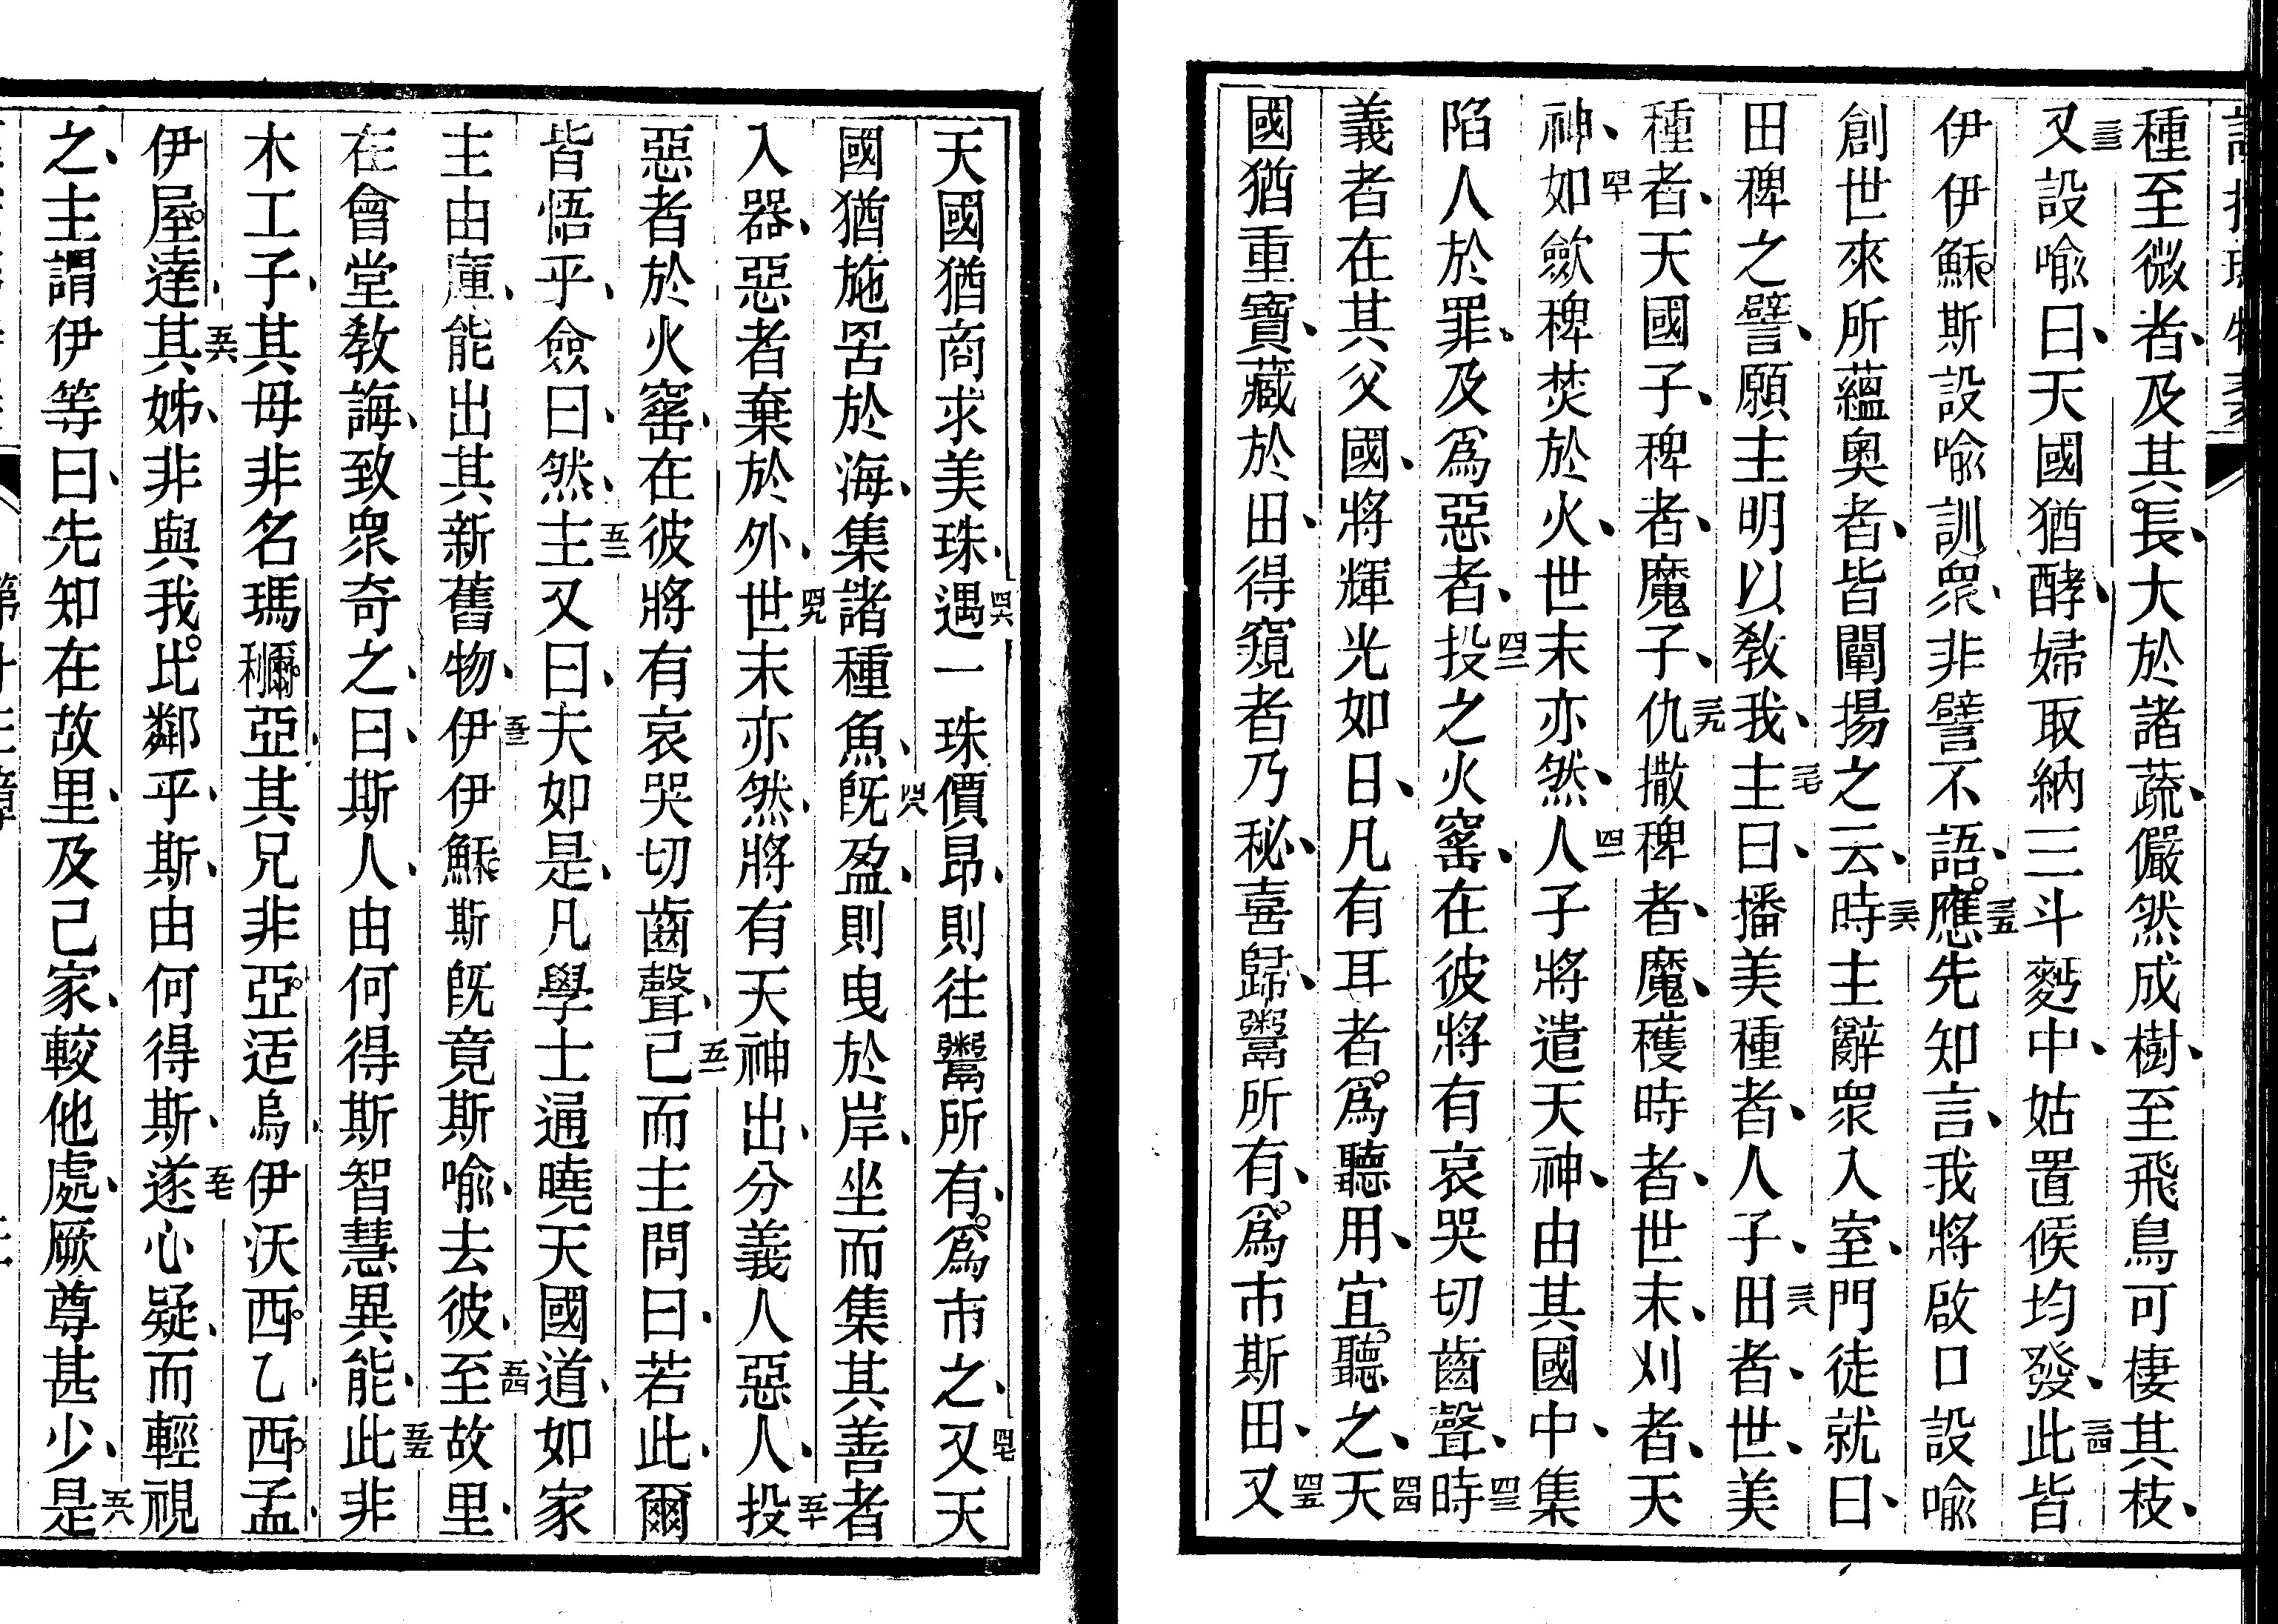 種至微者、及其長、大於諸蔬、儼然成樹、至飛鳥可棲其枝、
三三又設喻曰、天國猶酵、婦取納三斗麪中、姑置候均發、三四此皆
伊伊穌斯設喻訓眾、非譬不語、三五應先知言、我將啟口設喻
創世來所蘊奧者、皆闡揚之云、三六時主辭眾入室、門徒就曰、
田稗之譬、願主明以教我、三七主曰、播美種者、人子、三八田者、世、美
種者、天國子、稗者、魔子、三九仇撒稗者、魔、穫時者、世末、刈者、天
神、四十如斂稗焚於火、世末亦然、四一人子將遣天神、由其國中、集
陷人於罪、及為惡者、四二投之火窰、在彼將有哀哭切齒聲、四三時
義者在其父國、將輝光如日、凡有耳者為聽用、宜聽之、四四天
國猶重寶、藏於田、得窺者乃秘、喜歸、鬻所有、為市斯田、四五又
天國猶商求美珠、四六遇一珠價昂、則往鬻所有、為市之、四七又天
國猶施罟於海、集諸種魚、四八旣盈、則曳於岸、坐而集其善者
入器、惡者棄於外、四九世末亦然、將有天神出、分義人惡人、五十投
惡者於火窰、在彼將有哀哭切齒聲、五一已而主問曰、若此、爾
皆悟乎、僉曰、然、五二主又曰、夫如是、凡學士通曉天國道、如家
主由庫、能出其新舊物、五三伊伊穌斯旣竟斯喻、去彼、五四至故里、
在會堂教誨、致眾奇之、曰、斯人、由何得斯智慧異能、五五此非
木工子、其母非名瑪利爾亞、其兄非亞适烏、伊沃西、乙西孟、
伊屋達、五六其姊、非與我比鄰乎、斯、由何得斯、五七遂心疑、而輕視
之、主謂伊等曰、先知在故里、及己家、較他處、厥尊甚少、五八是